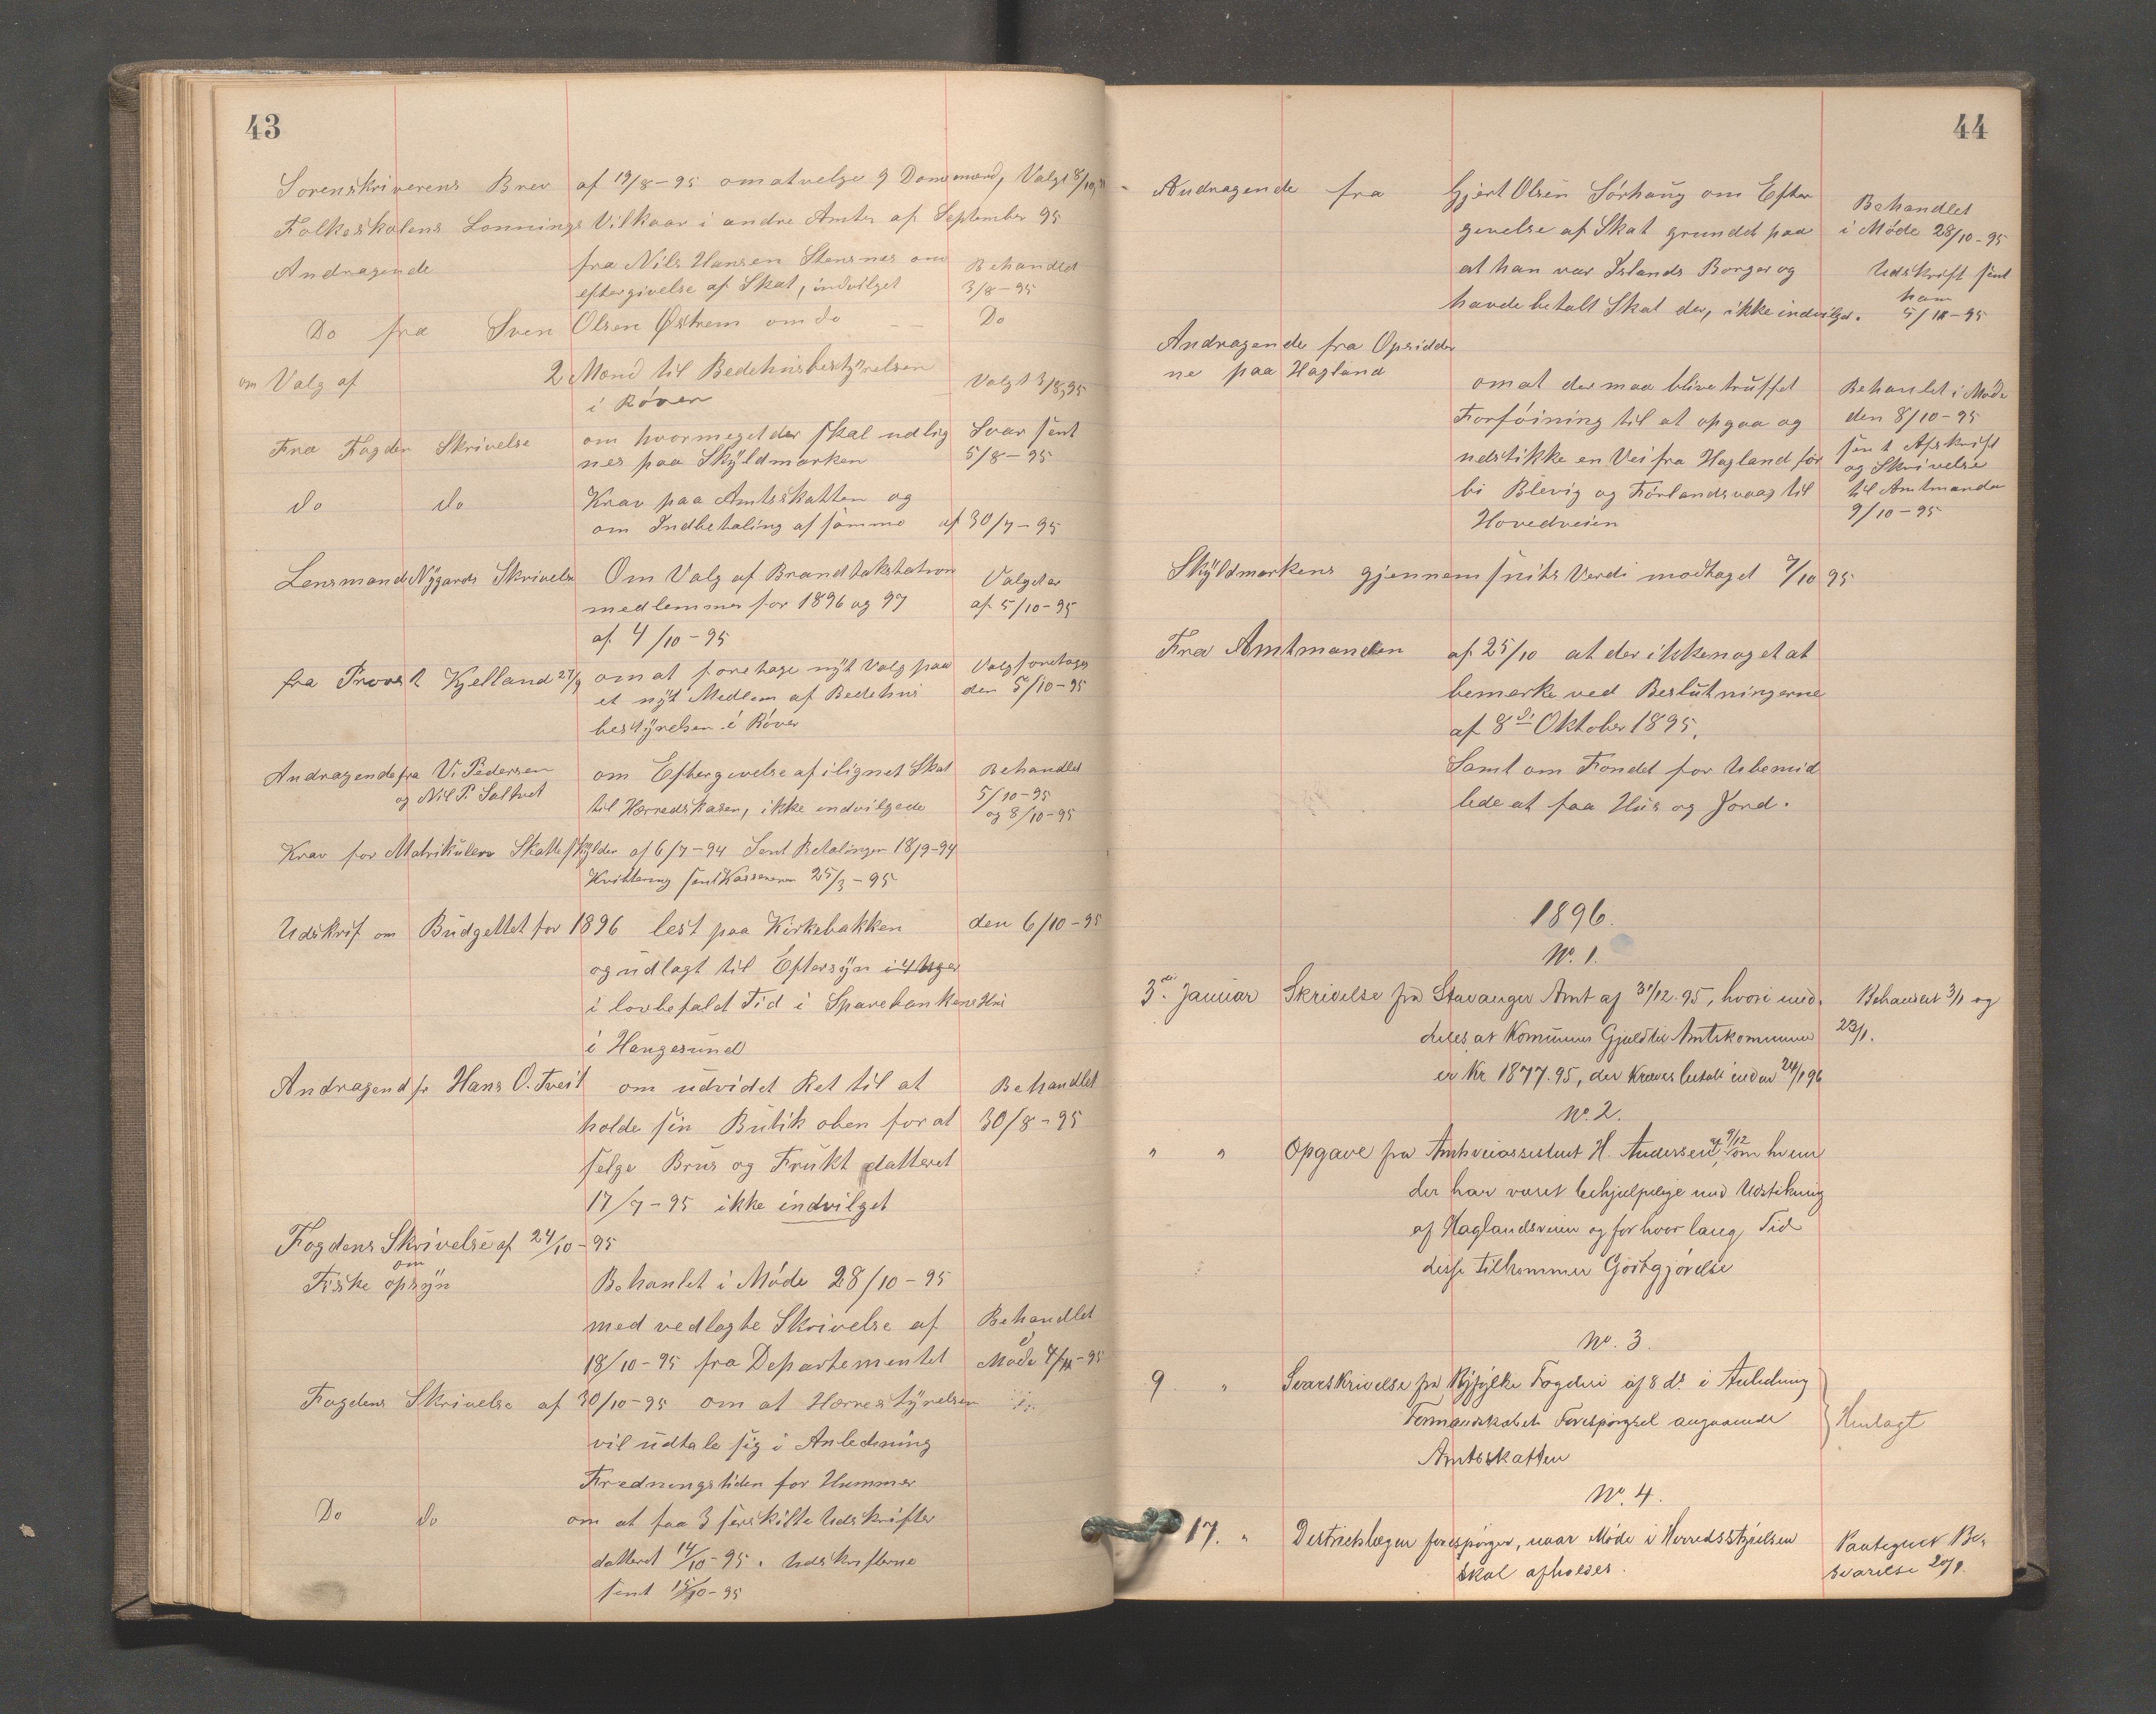 43
Sorenskriverens Brev af 19/8-95 om at velge 9 Domsmænd, Valgt 8/10
Folkeskolens Lønnings Vilkaar i andre Amter af September 95
Andragende fra Nils Hansen Stensnes om Behandlet
eftergivelse af Skat, indvilget 3/8-95
Do fra Sven Olsen Østrem om do — Do
om Valg af 2 Mænd til Bedehusbestyrelsen
i Röver Valgt 3/8 95
Fra Fogden Skrivelse om hvormeget der skal udlig Svar sent
nes paa Skyldmarken 5/8-95
do do Krav paa Amtsskatten og
om Indbetaling af samme af 30/7-95
Lensmand Nygaards Skrivelse Om Valg af Brandtakstation Valget er
medlemmer for 1896 og 97 af 5/10-95
af 4/10-95
fra Provst Kjelland 27/9 om at foretage nyt Valg paa Valg foretages
et nyt Medlem af Bedehus den 5/10-95
bestyrelsen i Röver
Andragende fra V. Pedersen om Eftergivelse af ilignet Skat Behandlet
og Nil P. Saltvet til Herredskasen, ikke indvilgede 5/10-95
og 8/10-95
Krav for Matrikulens Skatteskylder af 6/7-94 Sent Betalingen 18/9-94
Kvittering sent Kassereren 25/3-95
Udskrif om Budgettet for 1896 lest paa Kirkebakken den 6/10-95
og udlagt til Eftersyn i 4 Uger
i lovbefalet Tid i Sparebankens Hus
i Haugesund
Andragend fr Hans O. Tveit om udvidet Ret til at Behandlet
holde sin Butik oben for at 30/8-95
selge Brus og Frukt datteret
17/7-95 ikke indvilget
Fogdens Skrivelse af 24/10-95
om
Fiske opsyn Behanlet i Möde 28/10-95
med vedlagte Skrivelse af Behandlet
18/10-95 fra Departementet i Möde 4/11-95
Fogdens Skrivelse af 30/10-95 om at Herrestyrelsen
vil udtale sig i Anledning
Fredningstiden for Hummer
Do do om at faa 3 serskilte Udskrifter
datteret 14/10-95. Udskrifterne
sent 15/10-95
44
Andragende fra Gjert Olsen Sörhaug om Efter Behandlet
gevelse af Skat grundet paa i Möde 28/10-95
at han var Islands Borger og Udskrift sent
havde betalt Skat der, ikke indvilget. ham 5/11-95
Andragende fra Opsidder
ne paa Hagland om at der maa blive truffet Behanlet i Möde
Forföining til at opgaa og den 8/10-95
udstikke en Vei fra Hagland for sent Afskrift
bi Blevig og Förlandsvaag til og Skrivelse
Hovedveien til Amtmanden
9/10-95
Skyldmarkens gjennemsnits Verdi modtaget 7/10 95
Fra Amtmanden af 25/10 at der ikke noget at
bemerke ved Beslutningerne
af 8de Oktober 1895.
Samt om Fondet for Ubemid
lede at faa Hus og Jord.
1896.
No. 1.
3de Januar Skrivelse fra Stavanger Amt af 31/12. 95, hvori med- Behandlet 3/1 og
deles, at Komunens Gjæld til Amtskommunen 23/1.
er Kr. 1877.95, der kræves betalt inden 24/1 96
No. 2.
" " Opgave fra Amtsveiassistent H. Andersen af 9/12, om hvem
der har været behjelpelige med Udstikning
af Haglandsveien og for hvor lang Tid
disse tilkommer Godtgjörelse
No. 3.
9 " Svarskrivelse fra Ryfylke Fogderi af 8 ds. i Anledning
Formandskabets Forespörgsel angaaende Henlagt
Amtsskatten
No. 4.
17. " Distriktslægen forespörger, naar Möde i Herredsstyrelsen Paategnet Be-
skal afholdes. svarelse 20/1.